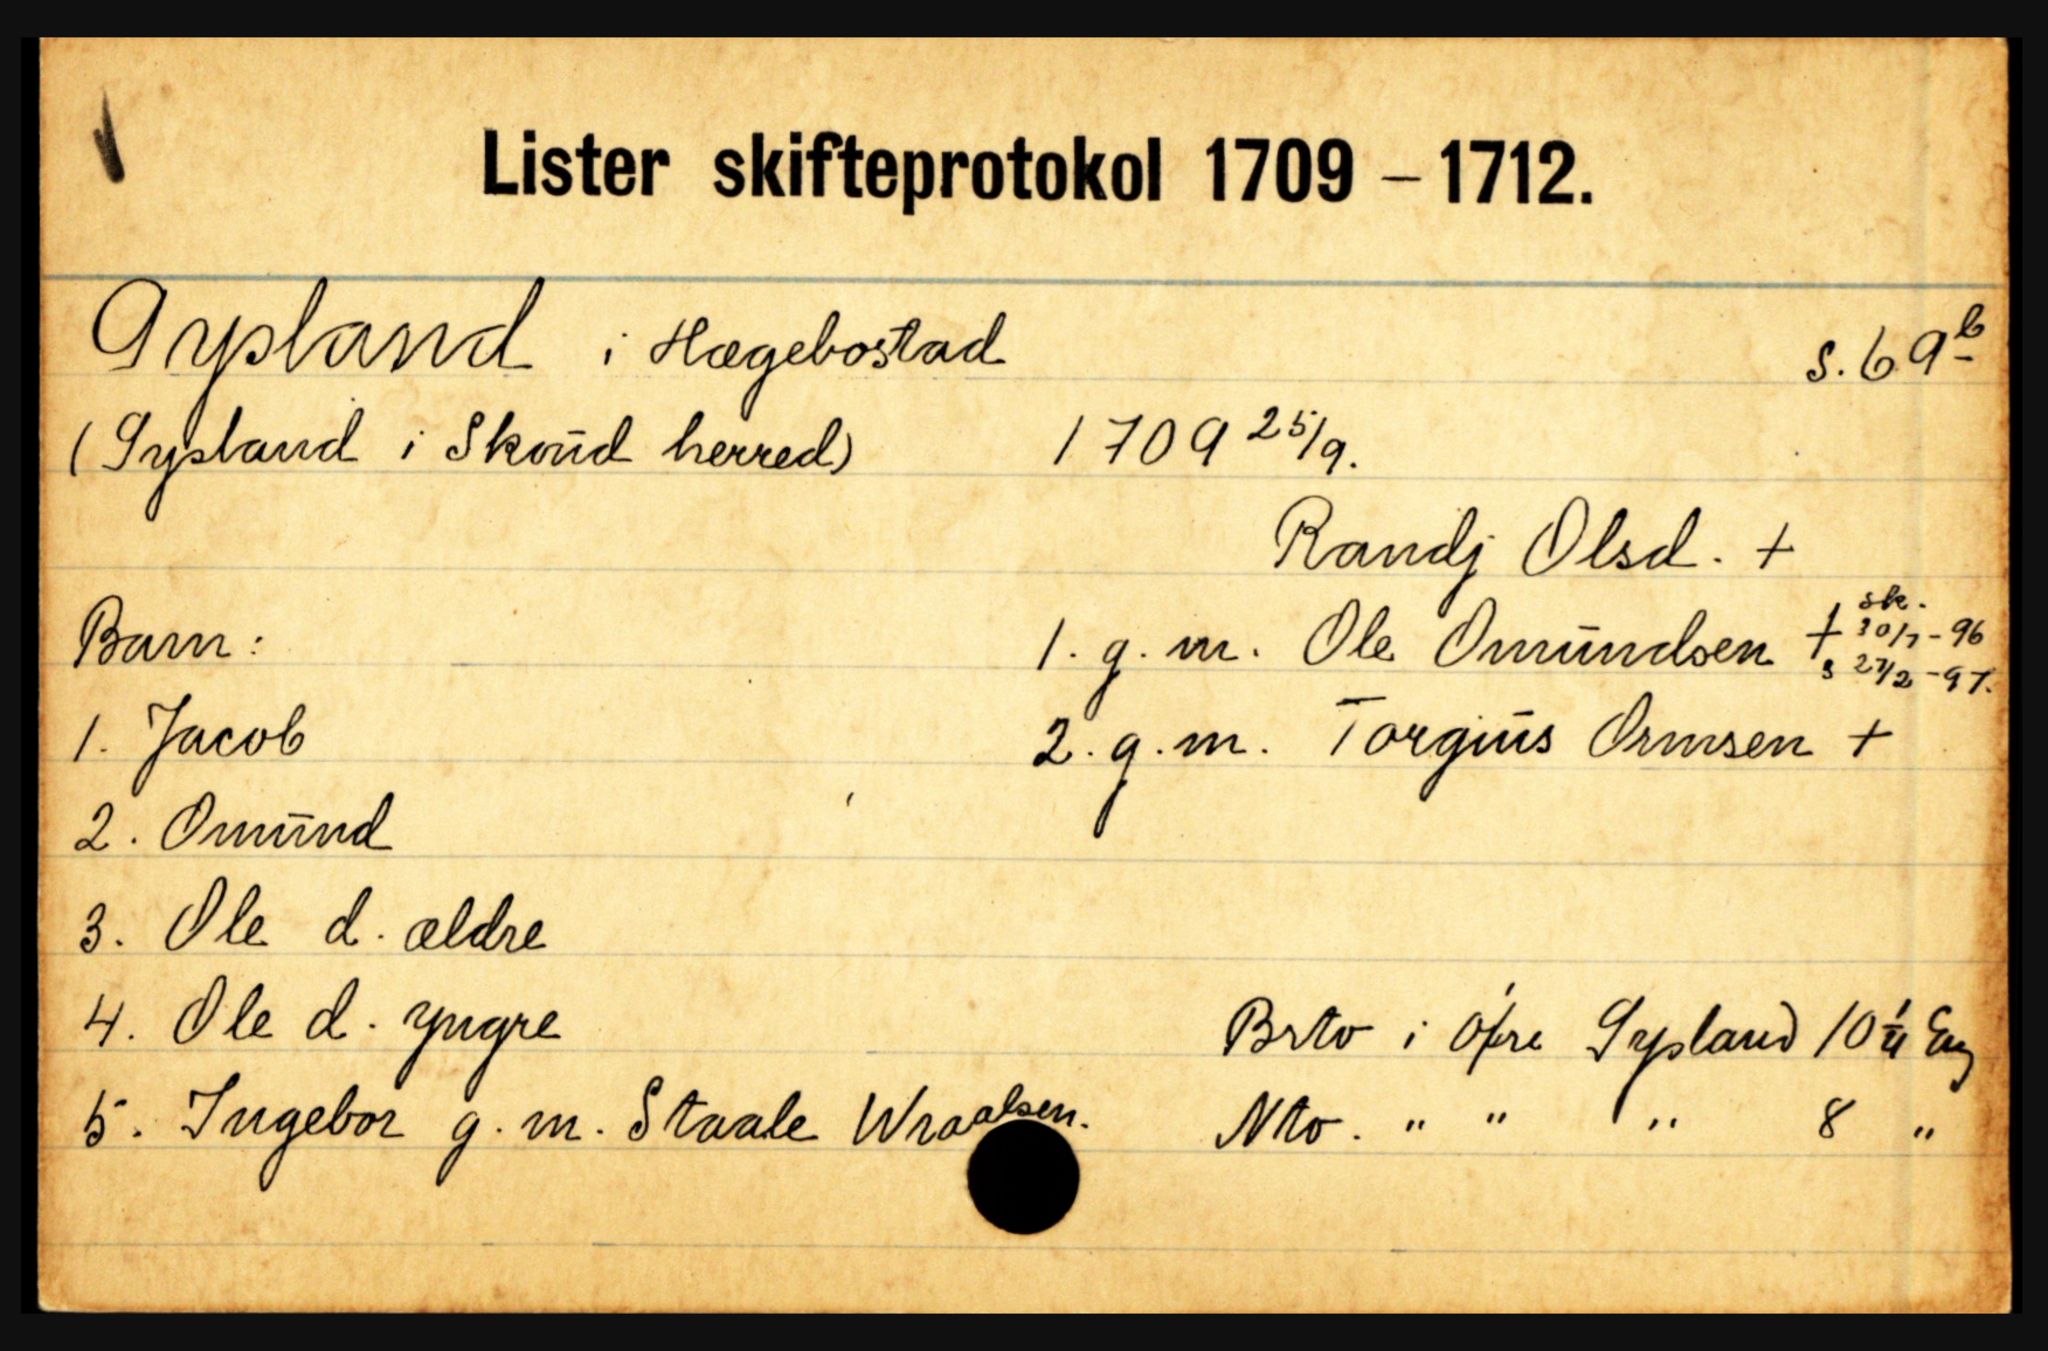 Lister skifteprotokol 1709 – 1712.
Gysland i Hægebostad s. 69 b
(Gysland i Skoud herred) 1709 25/9.
Randj Olsd. +
Barn: 1. g. m. Ole Omundsen + sk. 30/7-96 & 27/2-97.
1. Jacob 2. g. m. Torgius Ormsen +
2. Omund
3. Ole d. ældre
4. Ole d. yngre Brto i øfre Gysland 10 Eng
5. Ingebor g. m. Staale Wraalsen. Nto. " " " 8 "